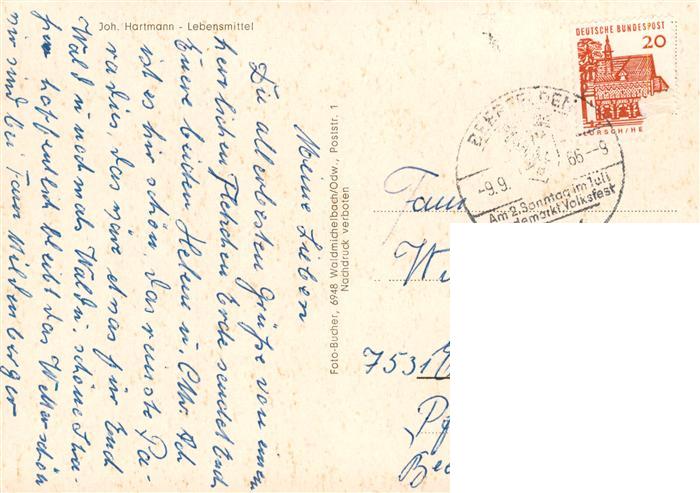 Joh. Hartmann - Lebensmittel
Meine Lieben
Die allerbesten Grüße von einem
herrlichen Fleckchen Erde sendet Euch
Euere beiden Helene u. Chr. Ach
ist es hier schön, das reinste Pa-
radies, das wäre etwas für Euch
Wald u. nochmals Wald u. schöne
hoffentlich bleibt das Wetter schön
wir sind bei Fam Wildenberger
Foto-Bucher, 6948 Waldmichelbach/Odw., Poststr. 1
Nachdruck verboten
DEUTSCHE BUNDESPOST
20
LORSCH/HE
-9.9.
66-9
Am 2. Sonntag im Juli
demarkt Volksfest
Fam
7531